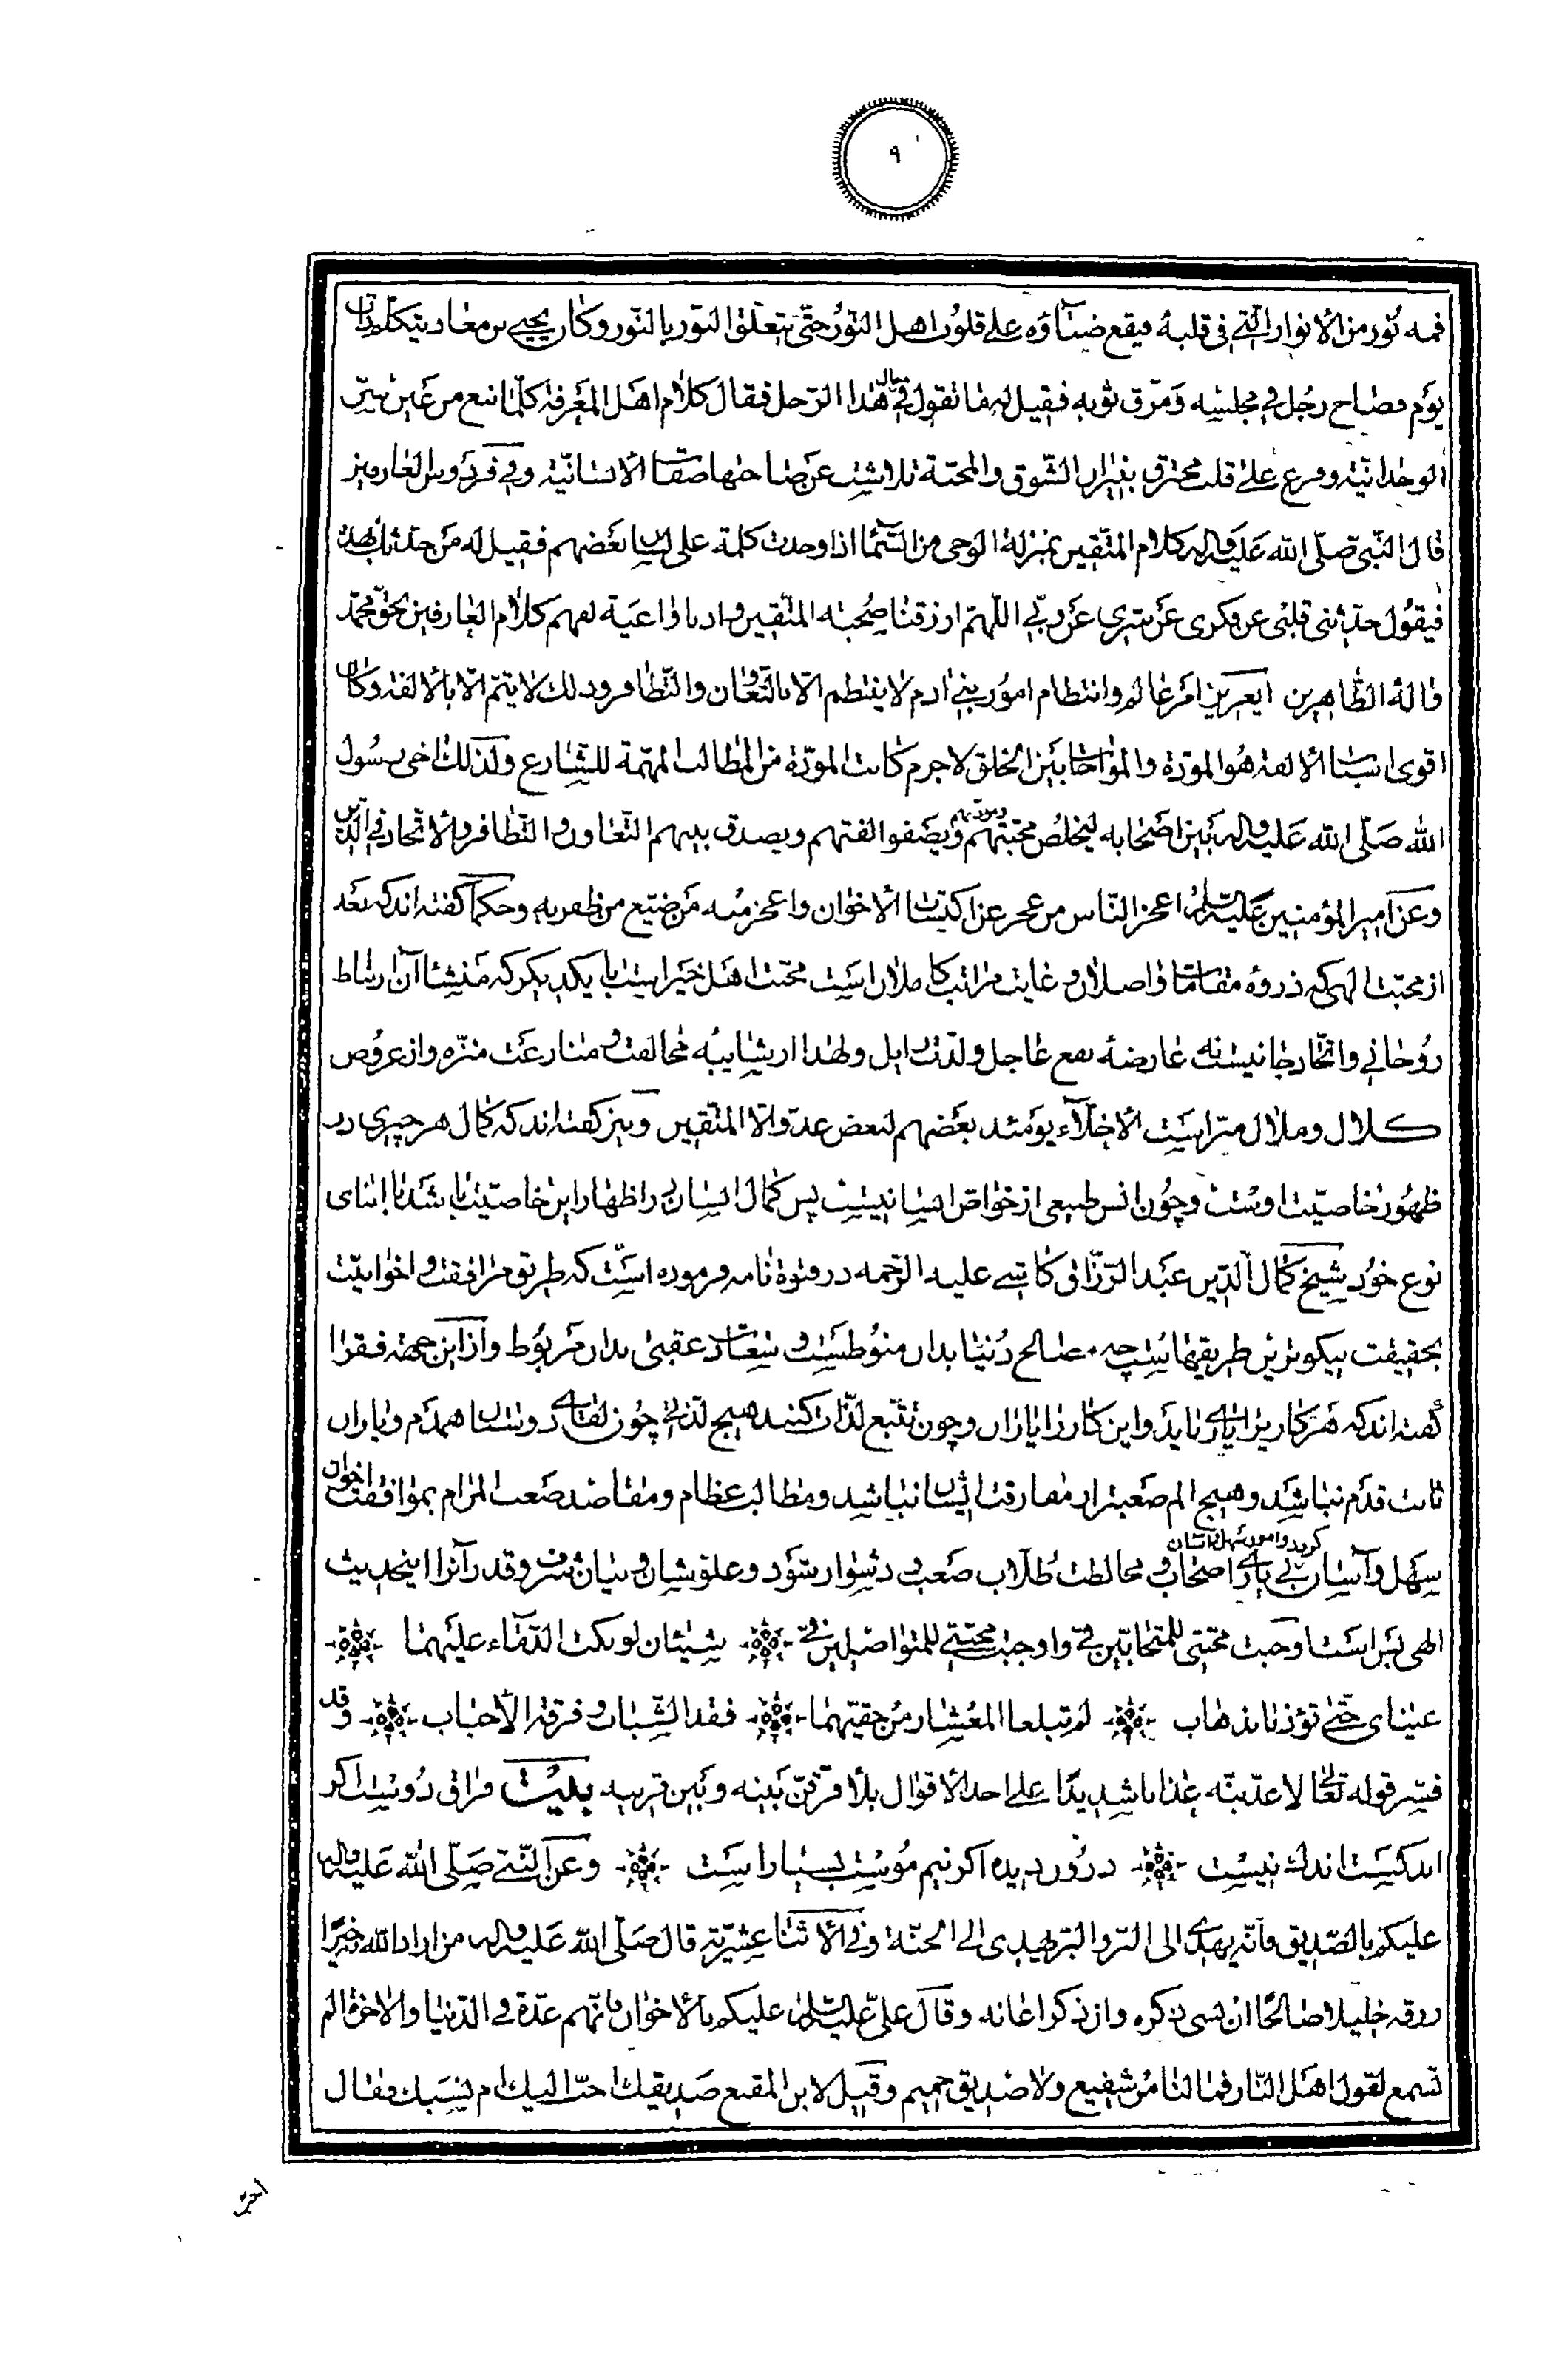 ٩
فمه نور من الانوار الّتی فی قلبه فیقع ضیاؤه علی قلوب اهل النور حتّی یتعلق النور بالنّور و کان یحیی بن معاذ یتکلم ذات
یوم فصاح رجل فی مجلسه و مزق ثوبه فقیل له ما تقول فی حال هذا الرّجل فقال کلام اهل المعرفة کلّما نبع من عین سرّ
الوحدانیّة و وقع علی قلب محترق بنیران الشّوق و المحبّة تلاشت عن صاحبها صفات الانسانیّة و فی فردوس العارفین
قال النّبی صلّی اللّه علیه و اله کلام المتّقین بمنزلة الوحی من السّماء اذا وجدت کلمة علی لسان بعضهم فقیل له من حدّثک بهذا
فیقول حدّثنی قلبی عن فکری عن سرّی عن ربّی اللّهمّ ارزقنا صحبة المتّقین و اذنا واعیة لفهم کلام العارفین بحقّ محمّد
و اله الطّاهرین ایعزیز امر عالم و انتظام امور بنی ادم لا ینتظم الّا بالتّعاون و التّظافر و ذلک لا یتمّ الّا بالالفة و کان
اقوی اسباب الالفة هو المودّة و المؤاخاة بین الخلق لاجرم کانت المودّة من المطالب المهمّة للشّارع و لذلک اخی رسول
اللّه صلّی اللّه علیه و اله بین اصحابه لیخلص محبّتهم و مودّتهم و یصفو الفتهم و یصدق بینهم التّعاون و التّظافر و الاتّحاد فی الدّین
و عن امیر المؤمنین علیه السّلام اعجز النّاس من عجز عن اکتساب الاخوان و اعجز منه من ضیّع من ظفر به و حکما گفته‌اند که بعد
از محبّت الهی که ذروهٔ مقامات واصلان و غایت مراتب کاملان است محبّت اهل خیر است با یکدیگر که منشا آن ارتباط
روحانی و اتّحاد جانیست نه عارضهٔ نفع عاجل و لذّت زایل و لهذا از شایبهٔ مخالفت و منازعت منزّه و از عروض
کلال و ملال مبرّا است الاخلّاء یومئذ بعضهم لبعض عدوّ الّا المتّقین و نیز گفته‌اند که کمال هر چیزی در
ظهور خاصیّت اوست و چون انس طبیعی از خواصّ انسانیست پس کمال انسان در اظهار این خاصیّت باشد با ابنای
نوع خود شیخ کمال الدّین عبد الرّزّاق کاشی علیه الرّحمه در فتوة نامه فرموده است که طریق مرافقت و اخوانیّت
بحقیقت نیکوترین طریقهاست چه مصالح دنیا بدان منوطست و سعادت عقبی بدان مربوط و از این جهة فقرا
گفته‌اند که هر کاریرا یاری باید و این کار را یاران و چون تتبّع لذّات کنند هیچ لذّتی چون لقای دوستان همدم و یاران
ثابت قدم نباشد و هیچ الم صعبتر از مفارقت ایشان نباشد و مطالب عظام و مقاصد صعب المرام بموافقت اخوان
سهل و آسان گردد و امور سهل آسان بی یاری اصحاب و مخالطت طلّاب صعب و دشوار شود و علوّ شان و بیان شرف و قدر آنرا اینحدیث
الهی بس است وجبت محبّتی للمتحابّین فیّ و اوجبت محبّتی للمتواصلین فیّ شیئان لو بکت الدّماء علیهما
عینای حتّی تؤذنا بذهاب لم تبلغا المعشار من حقّیهما فقد الشّباب و فرقة الاحباب و قد
فسّر قوله تعالی لاعذّبنّه عذابا شدیدًا علی احد الاقوال بلافرّقنّ بینه و بین قرینه بیت فراق دوست اگر
اندکیست اندک نیست درون دیده اگر نیم موست بسیار است و عن النّبی صلّی اللّه علیه و اله
علیکم بالصّدیق فانّه یهدی الی البرّ و البرّ یهدی الی الجنّة و فی الاثنا عشریّة قال صلّی اللّه علیه و اله من اراد اللّه به خیرًا
رزقه خلیلا صالحًا ان نسی ذکره و ان ذکر اعانه و قال علیّ علیه السّلام علیکم بالاخوان فانّهم عدّة فی الدّنیا و الاخرة الم
تسمع لقول اهل النّار فما لنا من شفیع و لا صدیق حمیم و قیل لابن المقفع صدیقک احبّ الیک ام نسیبک فقال